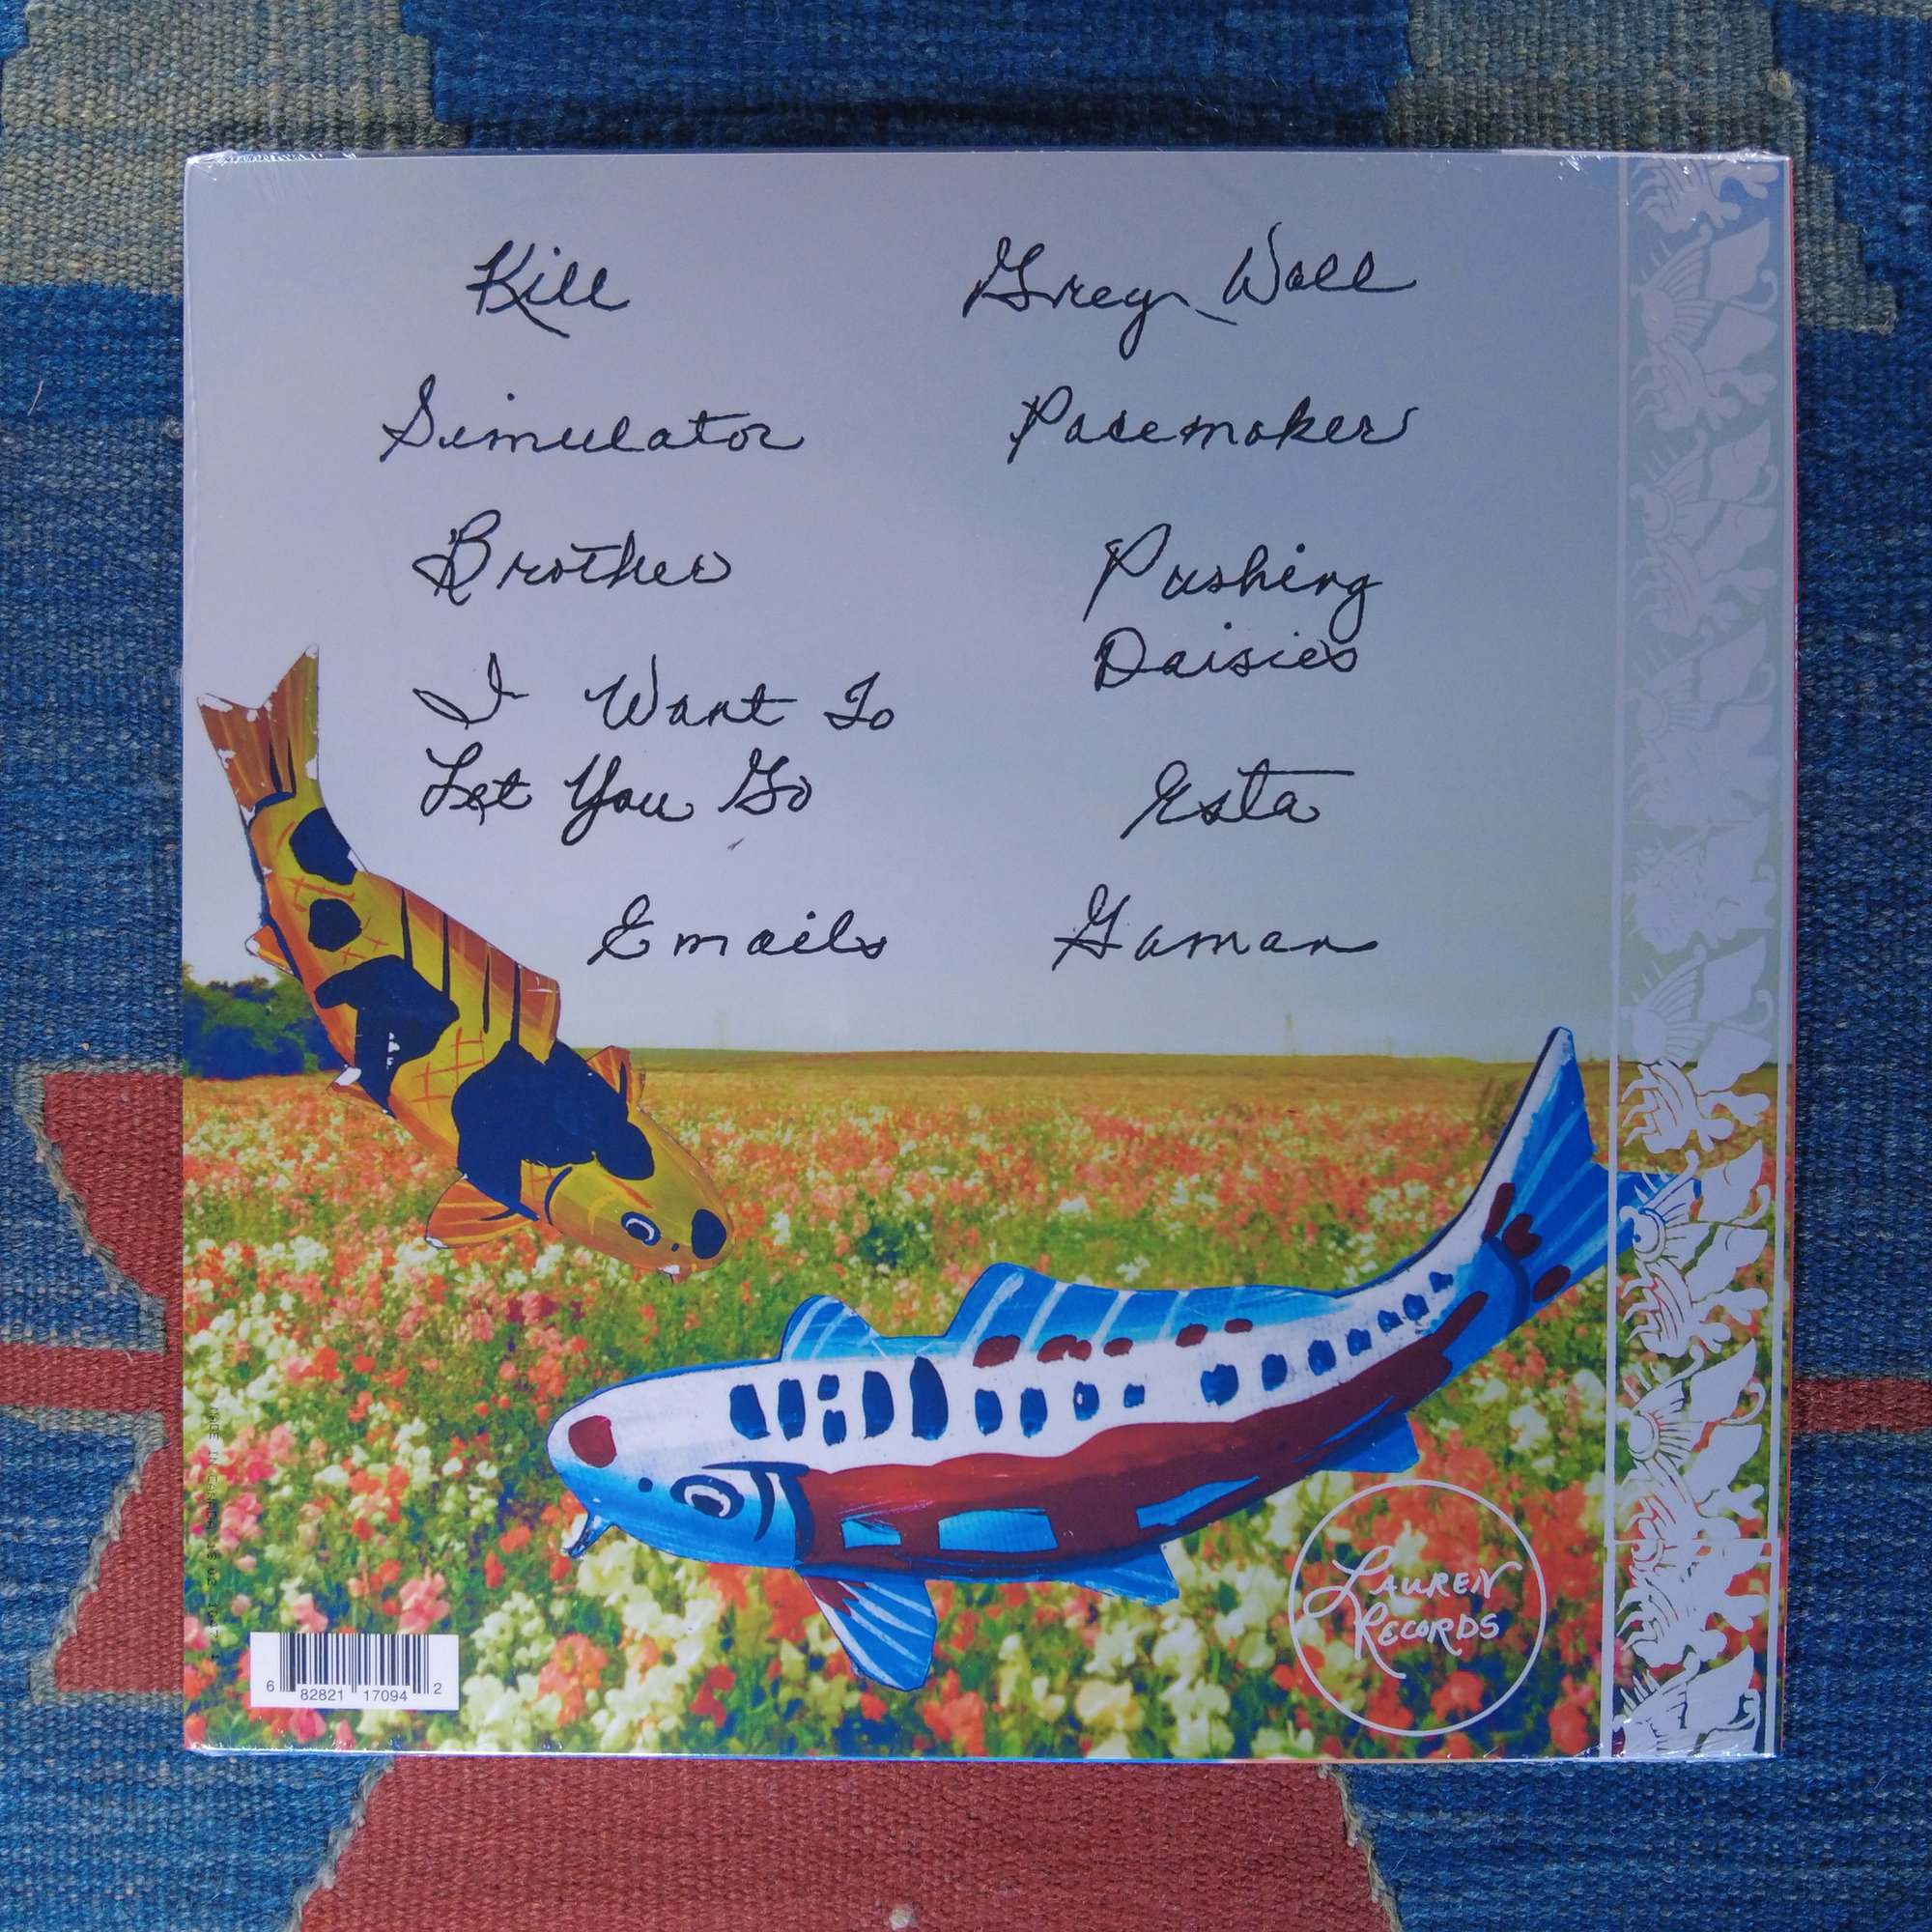 Kill
Simulator
Brother
I Want To
Let You Go
Emails
Grey Wall
Pacemaker
Pushing
Daisies
Esta
Gaman
LAUREN
RECORDS
6 82821 17094 2